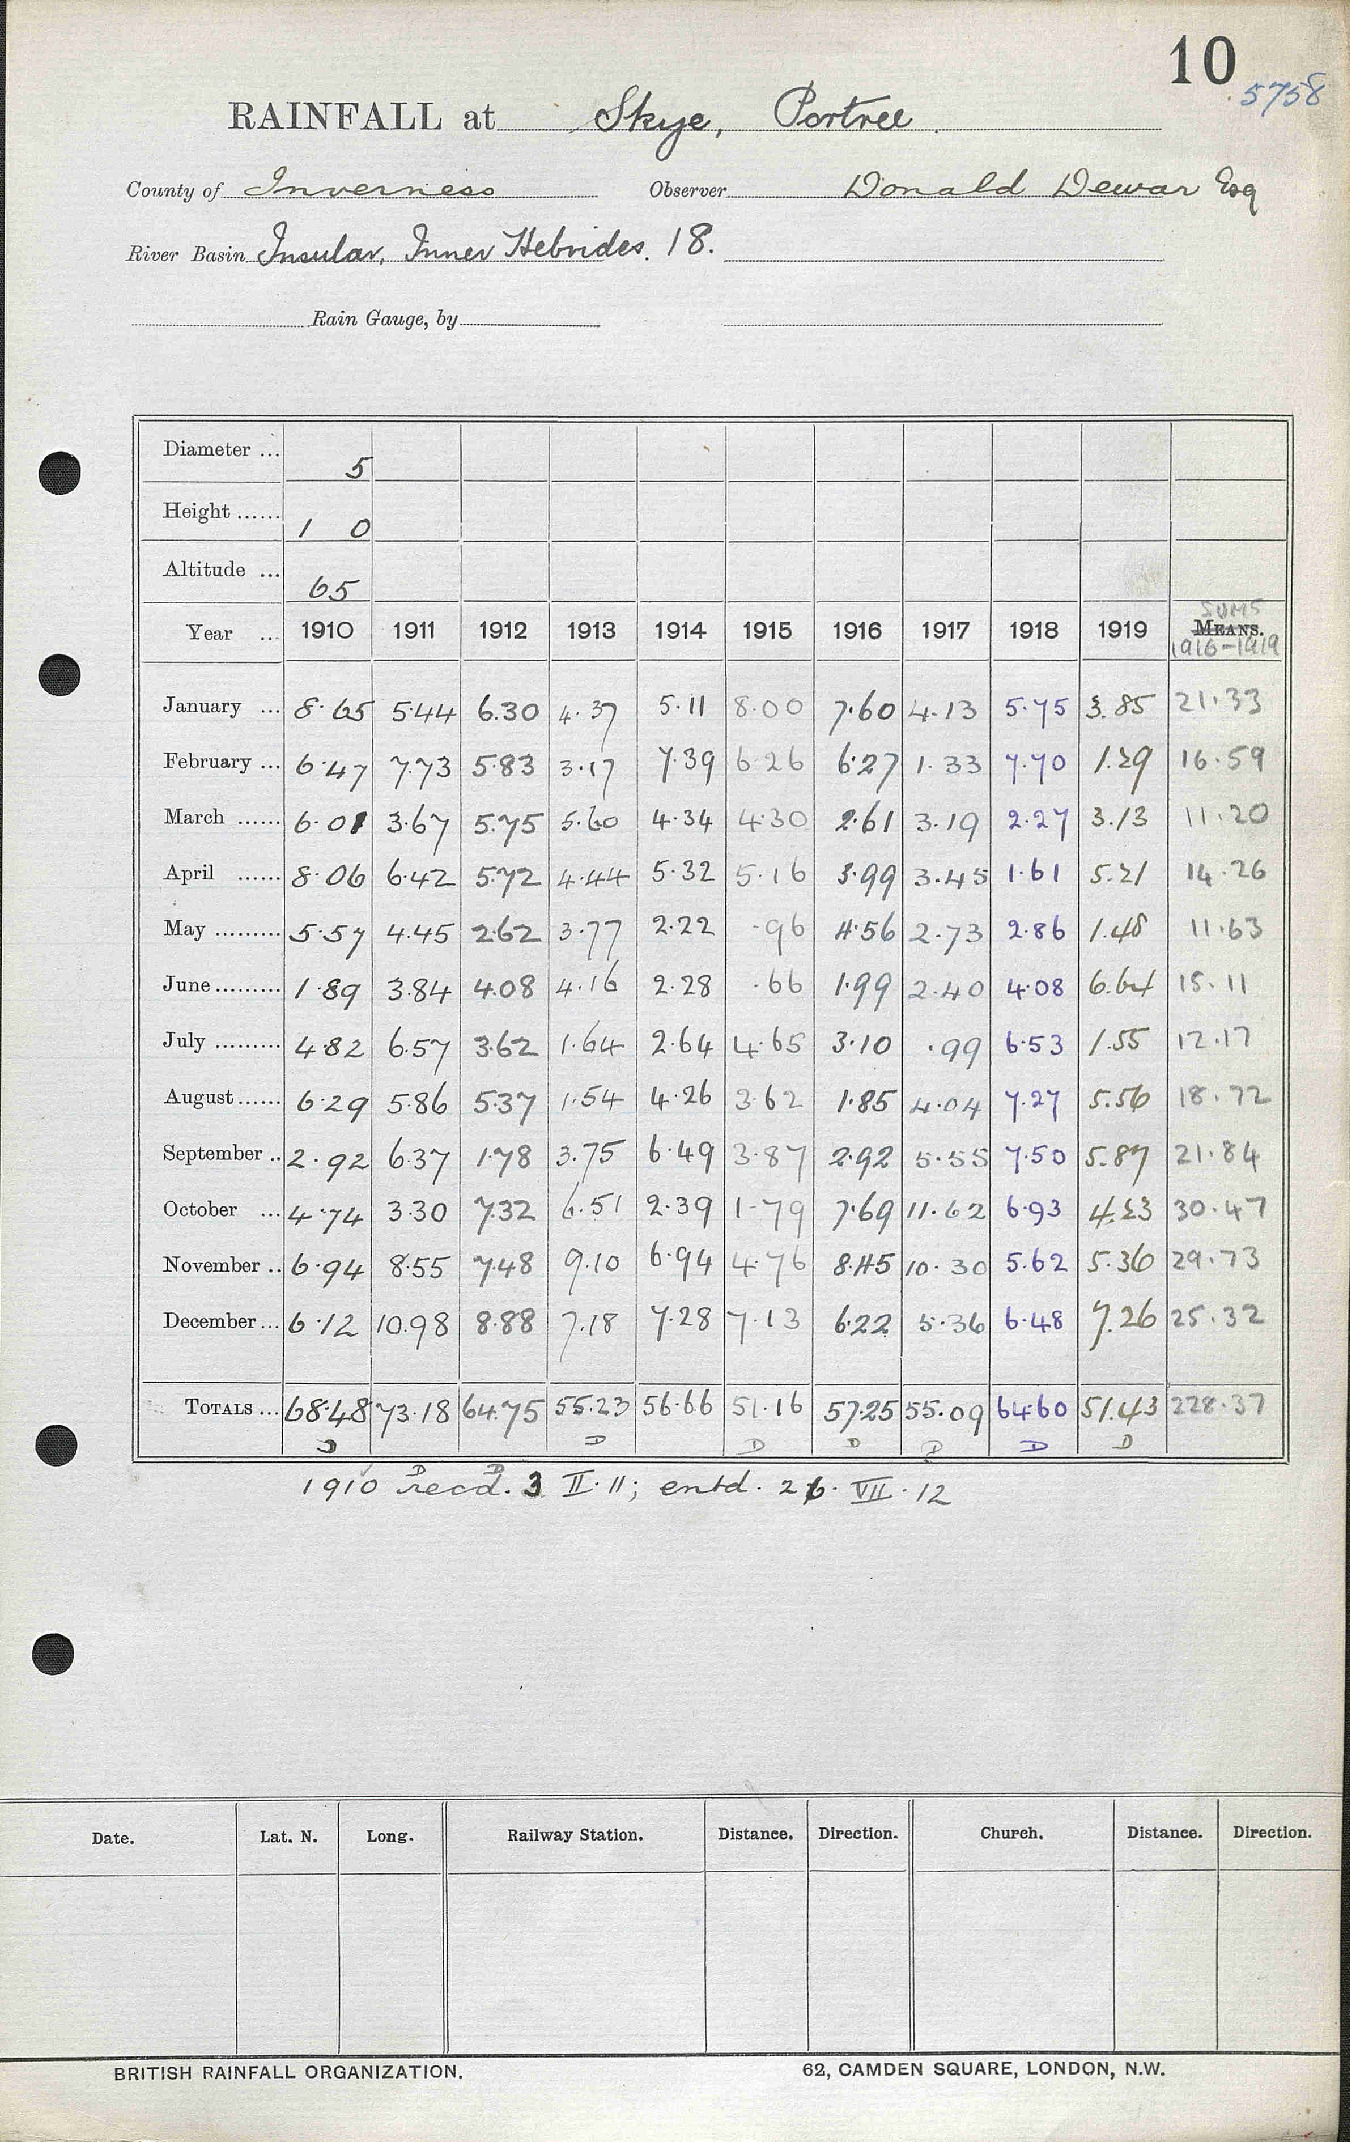 10
5758
RAINFALL at Skye, Portree.
County of Inverness Observer Donald Dewar Esq
River Basin Insular, Inner Hebrides. 18.
Rain Gauge, by
Diameter ... 5
Height ...... 1 0
Altitude ... 65
SUMS
Year ... 1910 1911 1912 1913 1914 1915 1916 1917 1918 1919 MEANS.
1916-1919
January ... 8.65 5.44 6.30 4.37 5.11 8.00 7.60 4.13 5.75 3.85 21.33
February ... 6.47 7.73 5.83 3.17 7.39 6.26 6.27 1.33 7.70 1.29 16.59
March ...... 6.01 3.67 5.75 5.60 4.34 4.30 2.61 3.19 2.27 3.13 11.20
April ...... 8.06 6.42 5.72 4.44 5.32 5.16 3.99 3.45 1.61 5.21 14.26
May ......... 5.57 4.45 2.62 3.77 2.22 .96 4.56 2.73 2.86 1.48 11.63
June ......... 1.89 3.84 4.08 4.16 2.28 .66 1.99 2.40 4.08 6.64 15.11
July ......... 4.82 6.57 3.62 1.64 2.64 4.65 3.10 .99 6.53 1.55 12.17
August ...... 6.29 5.86 5.37 1.54 4.26 3.62 1.85 4.04 7.27 5.56 18.72
September .. 2.92 6.37 1.78 3.75 6.49 3.87 2.92 5.55 7.50 5.87 21.84
October ... 4.74 3.30 7.32 6.51 2.39 1.79 7.69 11.62 6.93 4.23 30.47
November .. 6.94 8.55 7.48 9.10 6.94 4.76 8.45 10.30 5.62 5.36 29.73
December ... 6.12 10.98 8.88 7.18 7.28 7.13 6.22 5.36 6.48 7.26 25.32
TOTALS ... 68.48 73.18 64.75 55.23 56.66 51.16 57.25 55.09 64.60 51.43 228.37
D D D D D D D
D D
1910 recd. 3 II.11; entd. 26. VII.12
Date. Lat. N. Long. Railway Station. Distance. Direction. Church. Distance. Direction.
BRITISH RAINFALL ORGANIZATION. 62, CAMDEN SQUARE, LONDON, N.W.